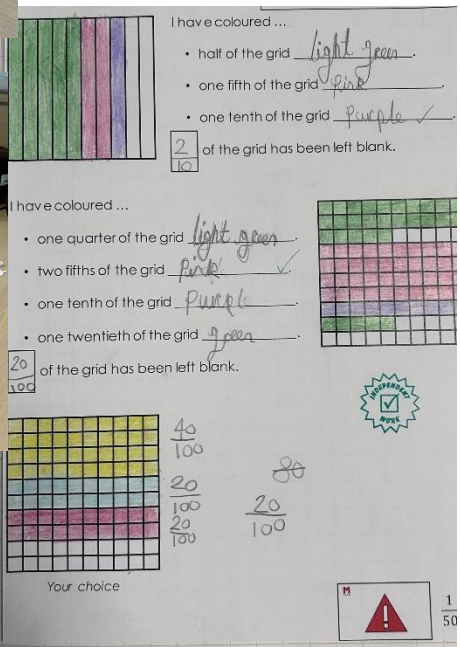 I have coloured ...
• half of the grid light green.
• one fifth of the grid Pink.
• one tenth of the grid purple ✓
2/10 of the grid has been left blank.
I have coloured ...
• one quarter of the grid light green.
• two fifths of the grid Pink ✓.
• one tenth of the grid Purple.
• one twentieth of the grid green.
20/100 of the grid has been left blank.
INDEPENDENT WORK
40/100
20/100
20/100
80
20/100
Your choice
M
!
1/50